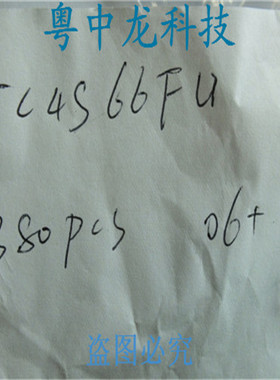 粤中龙科技
TC4S66FU
380pcs 06+
盗图必究